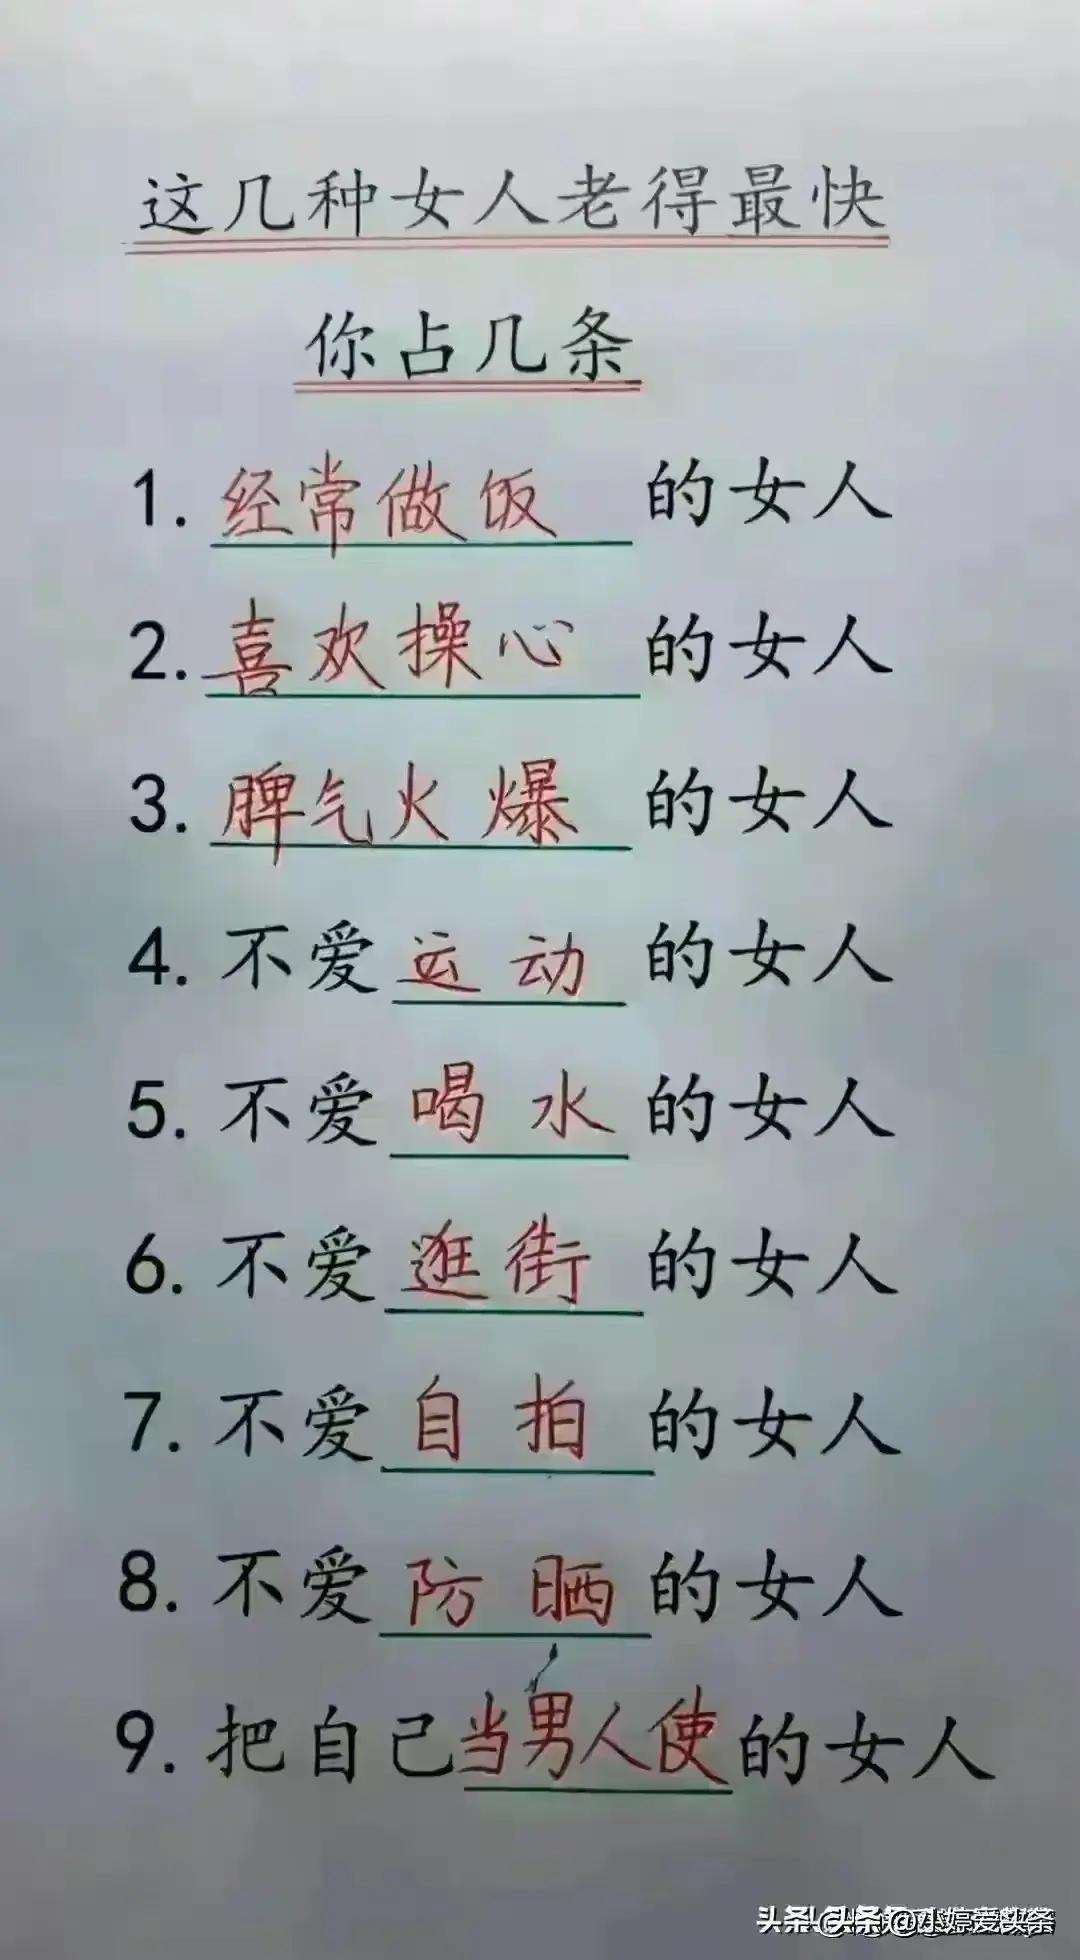 这几种女人老得最快
你占几条
1. 经常做饭 的女人
2. 喜欢操心 的女人
3. 脾气火爆 的女人
4. 不爱 运动 的女人
5. 不爱 喝水 的女人
6. 不爱 逛街 的女人
7. 不爱 自拍 的女人
8. 不爱 防晒 的女人
9. 把自己当男人使的女人
头条 @小婷爱头条